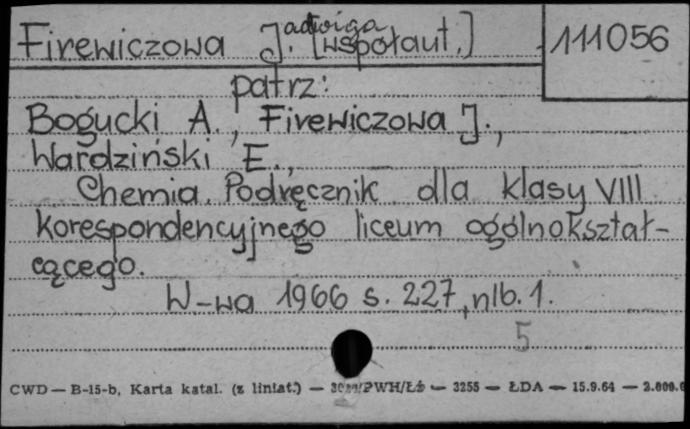 Firewiczowa Jadwiga [współaut.] 111056
patrz:
Bogucki A., Firewiczowa J.,
Wardziński E.,
Chemia. Podręcznik dla klasy VIII
korespondencyjnego liceum ogólnokształ-
cącego.
W-wa 1966 s. 227, nlb. 1.
5
CWD — B-15-b, Karta katal. (z liniat.) — PWH/Łó — 3255 — ŁDA — 15.9.64 —